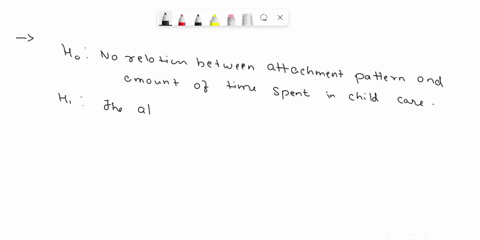 →
H₀ : No relation between attachment pattern and
amount of time spent in child care.
H₁ : The al